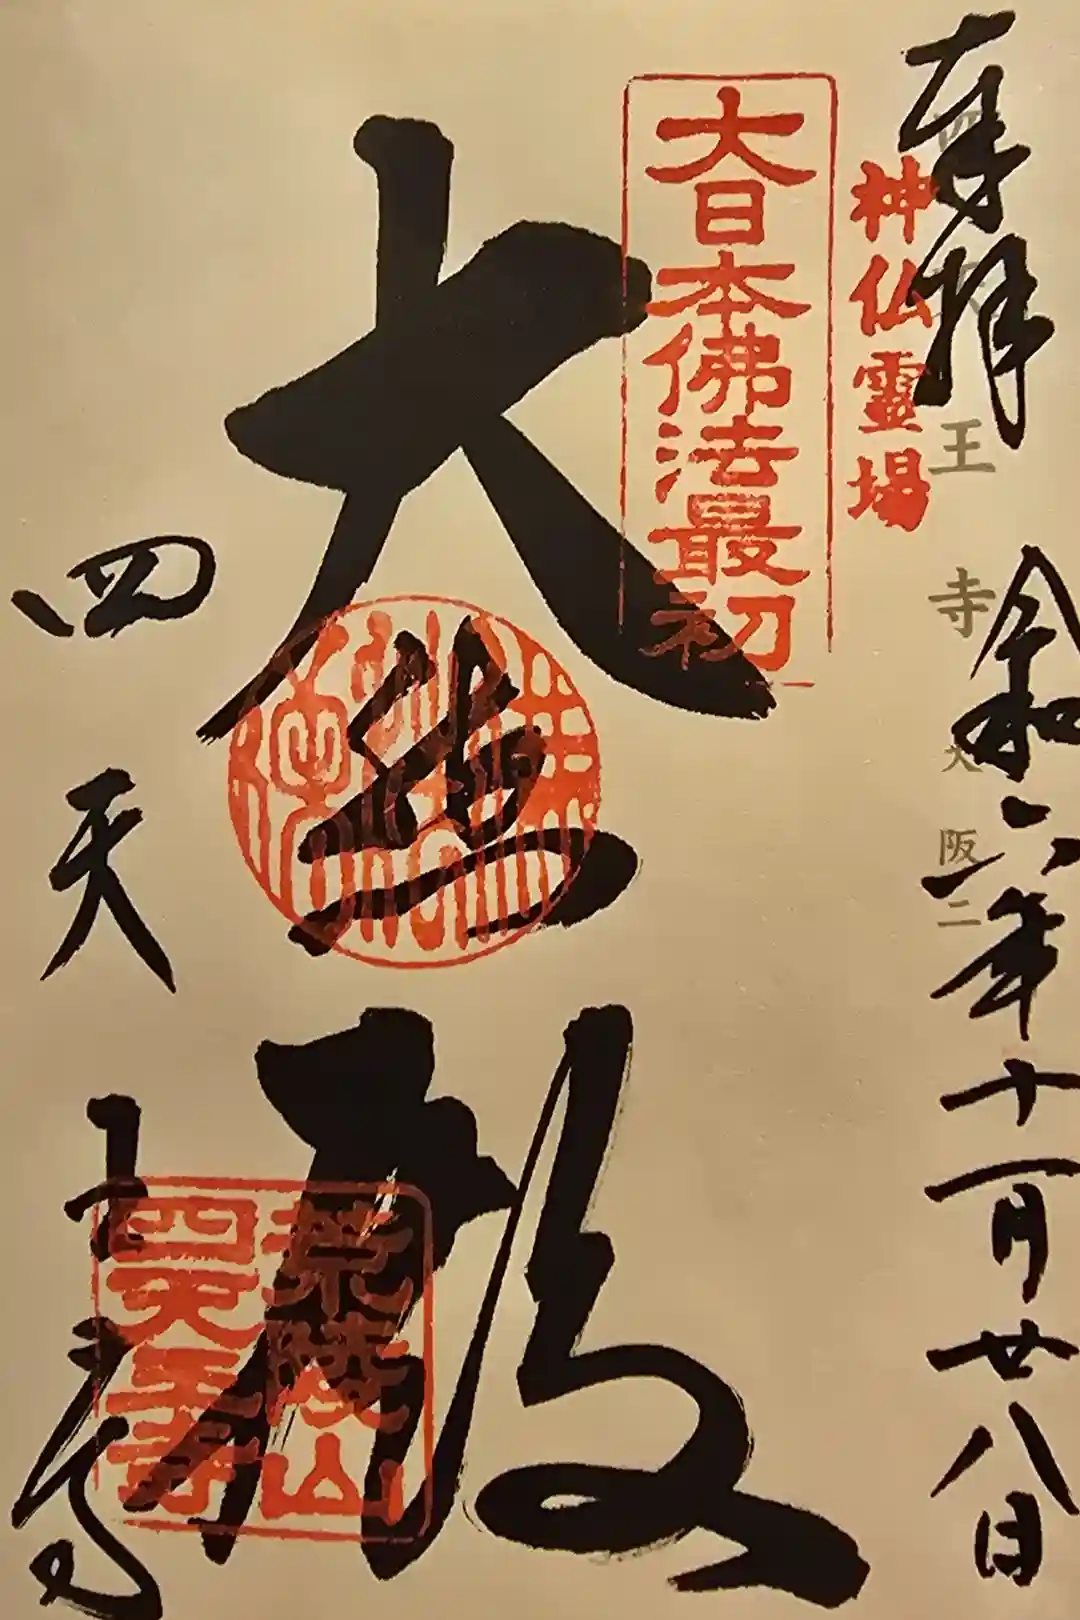 奉拝
令和六年十一月廿八日
四天王寺
大阪二
神仏霊場
大日本佛法最初
大悲殿
荒陵山
四天王寺
四天王寺